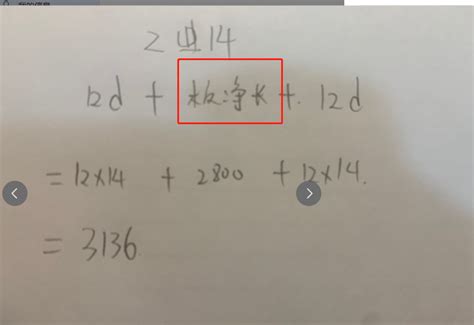 我的信息
2⏀14
12d + 板净长 + 12d
= 12×14 + 2800 + 12×14.
= 3136